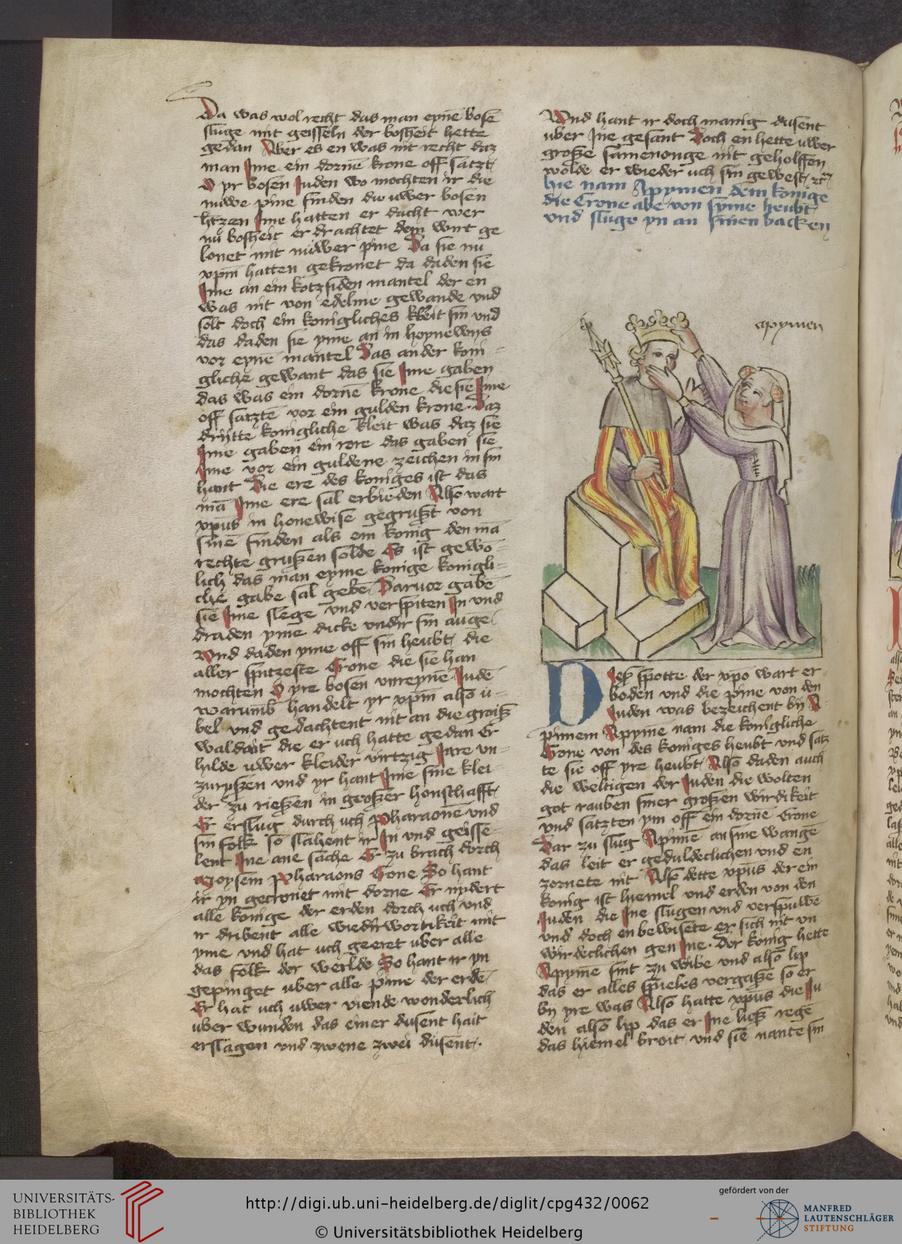 Da was wol recht das man eyne bose
sluge mit geisseln der bosheit hette
gedan Aber es en was nit recht daz
man Ime ein dorne krone off satzt
O yr bosen Juden wo mochten ir die
nuwe pine finden die uwer bosen
hertzen Ime hatten er dacht wer
nu bosheit erdrachtet dem wirt ge
lonet mit nuwer pine Da sie nu
xpm hatten gekronet da daden sie
Ime an ein kotzsiden mantel der en
was nit von edelme gewande und
solt doch ein konigliches kleit sin und
das daden sie yme an in honewijs
vor eyne mantel Das ander koni
gliche gewant das sie Ime gaben
das was ein dorne krone die sie Ime
off satzte vor ein gulden krone Daz
dritte konigliche kleit was daz sie
Ime gaben ein rore das gaben sie
Ime vor ein guldene zeichen in sin
hant Die ere des koniges ist das
ma Ime ere sal erbieden Also wart
xpus in honewise gegrußt von
sine finden als ein konig den ma
rechte grußen solde Es ist gewo
lich das man eyme konige konigli
che gabe sal gebe Daruor gabe
sie Ime slege und verspiten In und
draden yme dicke undir sin auge
Und daden yme off sin heubt die
aller spitzeste Crone die sie han
mochten O yre bosen unreyne Jude
warumb handelt yr xpm also u
bel und gedachtent nit an die groiß
waldait die er uch hatte gedan Er
hilde uwer kleider virtzig Jare un
zuryssen und yr hant Ime sine klei
der zu rießen in großer honschafft
Er erslug durch uch Pharaone und
sin folk so slahent ir In und geisse
lent Ine ane sache Er zu brach dorch
Moysem Pharaons Crone So hant
ir yn gecronet mit dorne Er nydert
alle konige der erden dorch uch und
ir dribent alle wiedirwortikeit mit
yme und hat uch geeret uber alle
das folk der werlde So hant ir yn
gepinget uber alle pine der erde
Er hat uch uwer viende wonderlich
uber wunden das einer dusent hait
erslagen und zwene zwei dusent
Und hant ir doch manig dusent
uber Ine gesant Doch en hette uwer
große samenonge nit geholffen
wolde er wieder uch sin gewest
hie nam Appymen dem konige
die Crone abe von syme heubt
und sluge yn an sinen backen
appymen
Diesß spotte der xpo wart er
boden und die pine von den
Juden was bezeichent by A
pimem Apyme nam die konigliche
Crone von des koniges heubt und satz
te sie off yre heubt Also daden auch
die weltigen der Juden die wolten
got rauben siner großen wirdikeit
und satzten ym off ein dorne Crone
Dar zu slug Apime an sine wange
das leit er gedultdeclichen und en
zornete nit Also dette xpus der ein
konig ist hiemel und erden von den
Juden die Ine slugen und verspuwe
und doch en bewisete er sich nit un
wirdeclichen gen Ime Der konig hette
Appyme sint zu wibe und also liep
das er alles spieles vergaße so er
by yre was Also hatte xpus die Ju
den also liep das er Ine ließ rege
das hiemel broit und sie nante sin
UNIVERSITÄTS-
BIBLIOTHEK
HEIDELBERG
http://digi.ub.uni-heidelberg.de/diglit/cpg432/0062
© Universitätsbibliothek Heidelberg
gefördert von der
MANFRED
LAUTENSCHLÄGER
STIFTUNG